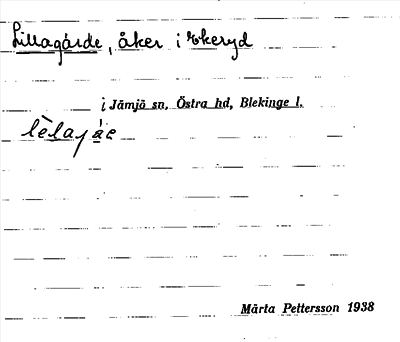 Lillagärde, åker i Økeryd
i Jämjö sn, Östra hd, Blekinge l.
Märta Pettersson 1938